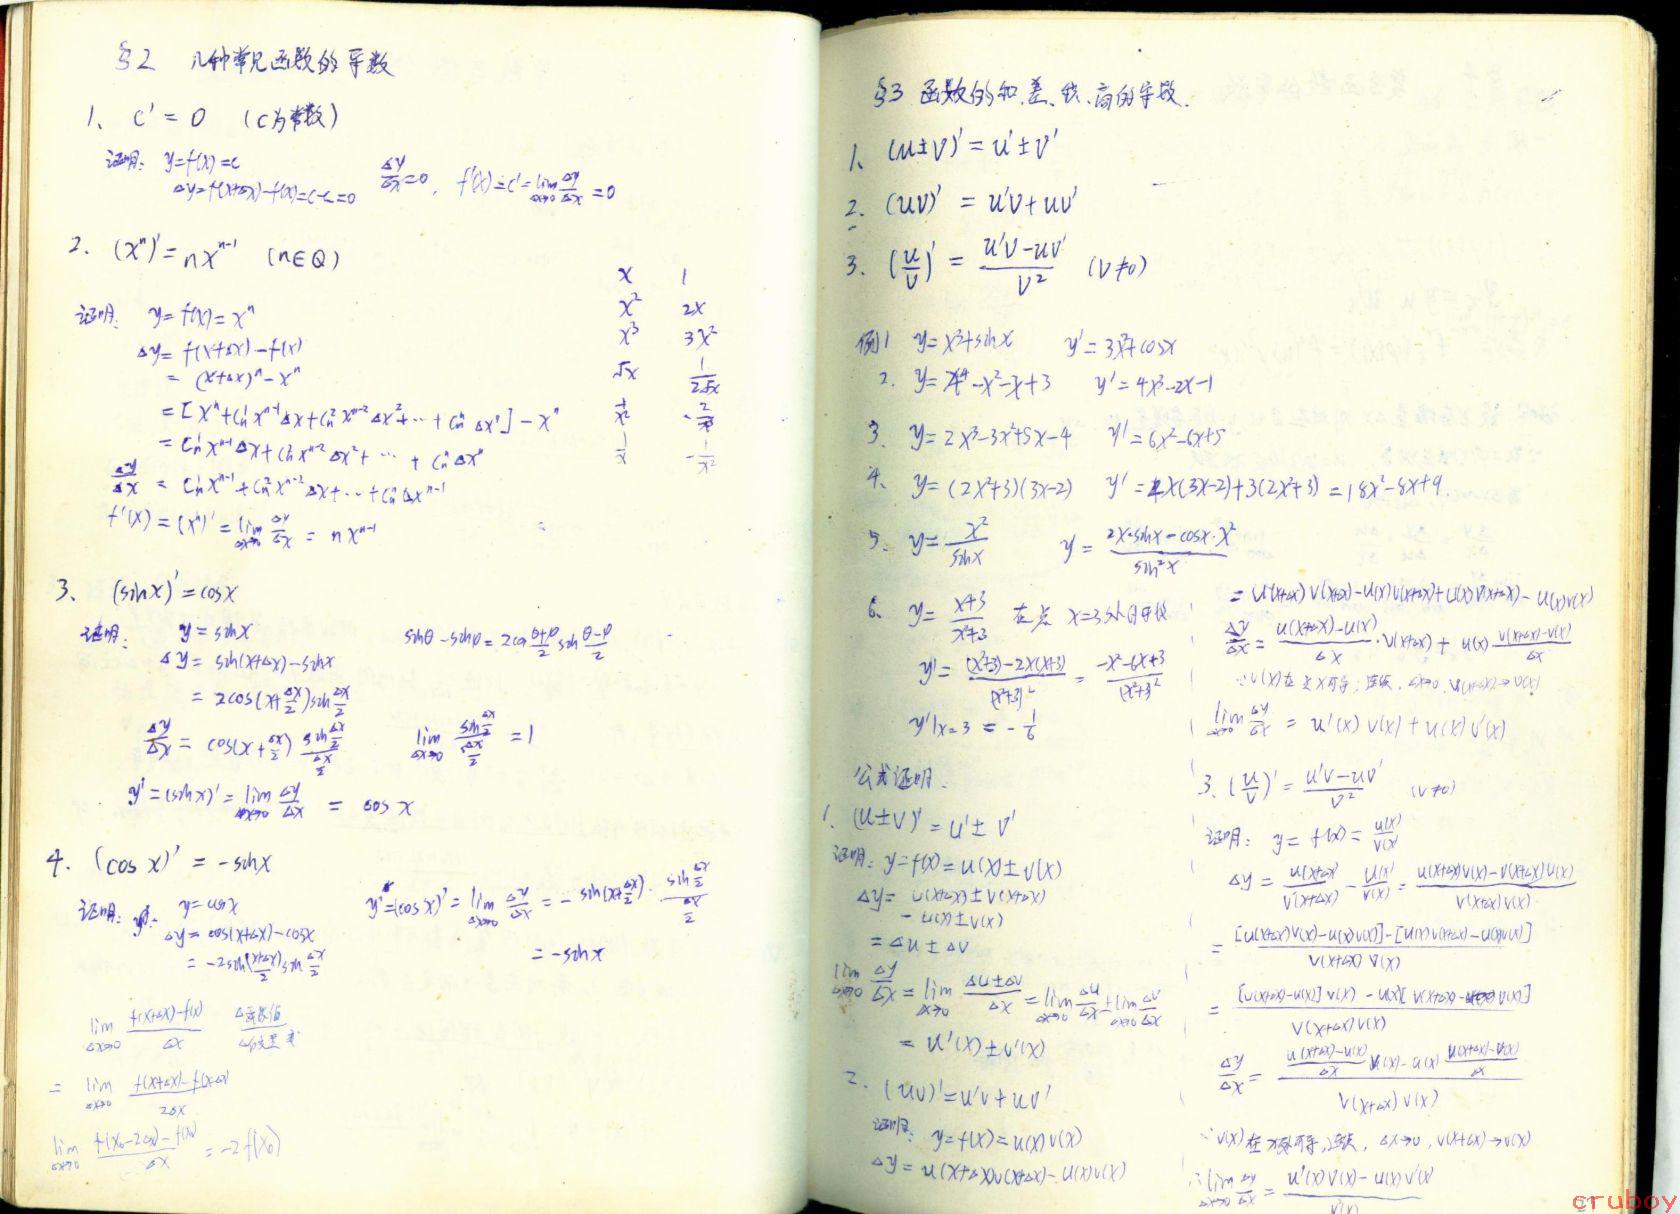 §2 几种常见函数的导数
1、 C' = 0 (C为常数)
证明: y=f(x)=c
Δy=f(x+Δx)-f(x)=c-c=0 Δy/Δx=0, f'(x)=C'=lim Δx→0 Δy/Δx=0
2. (xⁿ)'=nxⁿ⁻¹ (n∈Q)
证明: y=f(x)=xⁿ
Δy=f(x+Δx)-f(x)
=(x+Δx)ⁿ-xⁿ
=[xⁿ+Cn¹xⁿ⁻¹Δx+Cn²xⁿ⁻²Δx²+…+CnⁿΔxⁿ]-xⁿ
=Cn¹xⁿ⁻¹Δx+Cn²xⁿ⁻²Δx²+…+CnⁿΔxⁿ
Δy/Δx=Cn¹xⁿ⁻¹+Cn²xⁿ⁻²Δx+…+CnⁿΔxⁿ⁻¹
f'(x)=(xⁿ)'=lim Δx→0 Δy/Δx=nxⁿ⁻¹
x 1
x² 2x
x³ 3x²
√x 1/2√x
1/x² -2/x³
1/x -1/x²
3. (sinx)'=cosx
证明: y=sinx sinθ-sinφ=2cos (θ+φ)/2 sin (θ-φ)/2
Δy=sin(x+Δx)-sinx
=2cos(x+Δx/2)sin Δx/2
Δy/Δx=cos(x+Δx/2) (sin Δx/2)/(Δx/2) lim Δx→0 (sin Δx/2)/(Δx/2)=1
y'=(sinx)'=lim Δx→0 Δy/Δx = cos x
4. (cos x)' = -sinx
证明: y=cosx y'=(cosx)'=lim Δx→0 Δy/Δx=-sin(x+Δx/2)·(sin Δx/2)/(Δx/2)
Δy=cos(x+Δx)-cosx =-sinx
=-2sin (x+Δx)/2 sin Δx/2
lim Δx→0 (f(x+Δx)-f(x))/Δx
= lim Δx→0 (f(x+Δx)-f(x-Δx))/2Δx
lim Δx→0 (f(x₀-2Δx)-f(x₀))/Δx = -2f(x₀)
§3 函数的和、差、积、商的导数.
1、 (u±v)'=u'±v'
2. (uv)' = u'v+uv'
3. (u/v)' = (u'v-uv')/v² (v≠0)
例1 y=x³+sinx y'=3x²+cosx
2. y=x⁴-x²-x+3 y'=4x³-2x-1
3. y=2x³-3x²+5x-4 y'=6x²-6x+5
4. y=(2x²+3)(3x-2) y'=4x(3x-2)+3(2x²+3)=18x²-8x+9
5. y=x²/sinx y=(2x·sinx-cosx·x²)/sin²x
6. y=(x+3)/(x²+3) 在点 x=3处的导数
y'=((x²+3)-2x(x+3))/(x²+3)²=(-x²-6x+3)/(x²+3)²
y'|x=3 = -1/6
公式证明.
1. (u±v)'=u'±v'
证明: y=f(x)=u(x)±v(x)
Δy=u(x+Δx)±v(x+Δx)
-u(x)±v(x)
=Δu±Δv
lim Δx→0 Δy/Δx=lim Δx→0 (Δu±Δv)/Δx=lim Δx→0 Δu/Δx±lim Δx→0 Δv/Δx
= u'(x)±v'(x)
2. (uv)'=u'v+uv'
证明: y=f(x)=u(x)v(x)
Δy=u(x+Δx)v(x+Δx)-u(x)v(x)
=u(x+Δx)v(x+Δx)-u(x)v(x+Δx)+u(x)v(x+Δx)-u(x)v(x)
Δy/Δx=(u(x+Δx)-u(x))/Δx·v(x+Δx)+u(x)(v(x+Δx)-v(x))/Δx
∵v(x)在点x可导,连续,Δx→0,v(x+Δx)→v(x)
lim Δx→0 Δy/Δx = u'(x)v(x)+u(x)v'(x)
3. (u/v)'=(u'v-uv')/v² (v≠0)
证明: y=f(x)=u(x)/v(x)
Δy=u(x+Δx)/v(x+Δx)-u(x)/v(x)=(u(x+Δx)v(x)-v(x+Δx)u(x))/v(x+Δx)v(x)
=([u(x+Δx)v(x)-u(x)v(x)]-[u(x)v(x+Δx)-u(x)v(x)])/v(x+Δx)v(x)
=([u(x+Δx)-u(x)]v(x)-u(x)[v(x+Δx)-v(x)])/v(x+Δx)v(x)
Δy/Δx=((u(x+Δx)-u(x))/Δx v(x)-u(x)(v(x+Δx)-v(x))/Δx)/v(x+Δx)v(x)
∵v(x)在x处可导,连续,Δx→0,v(x+Δx)→v(x)
∴lim Δx→0 Δy/Δx=(u'(x)v(x)-u(x)v'(x))/v²(x)
cruboy